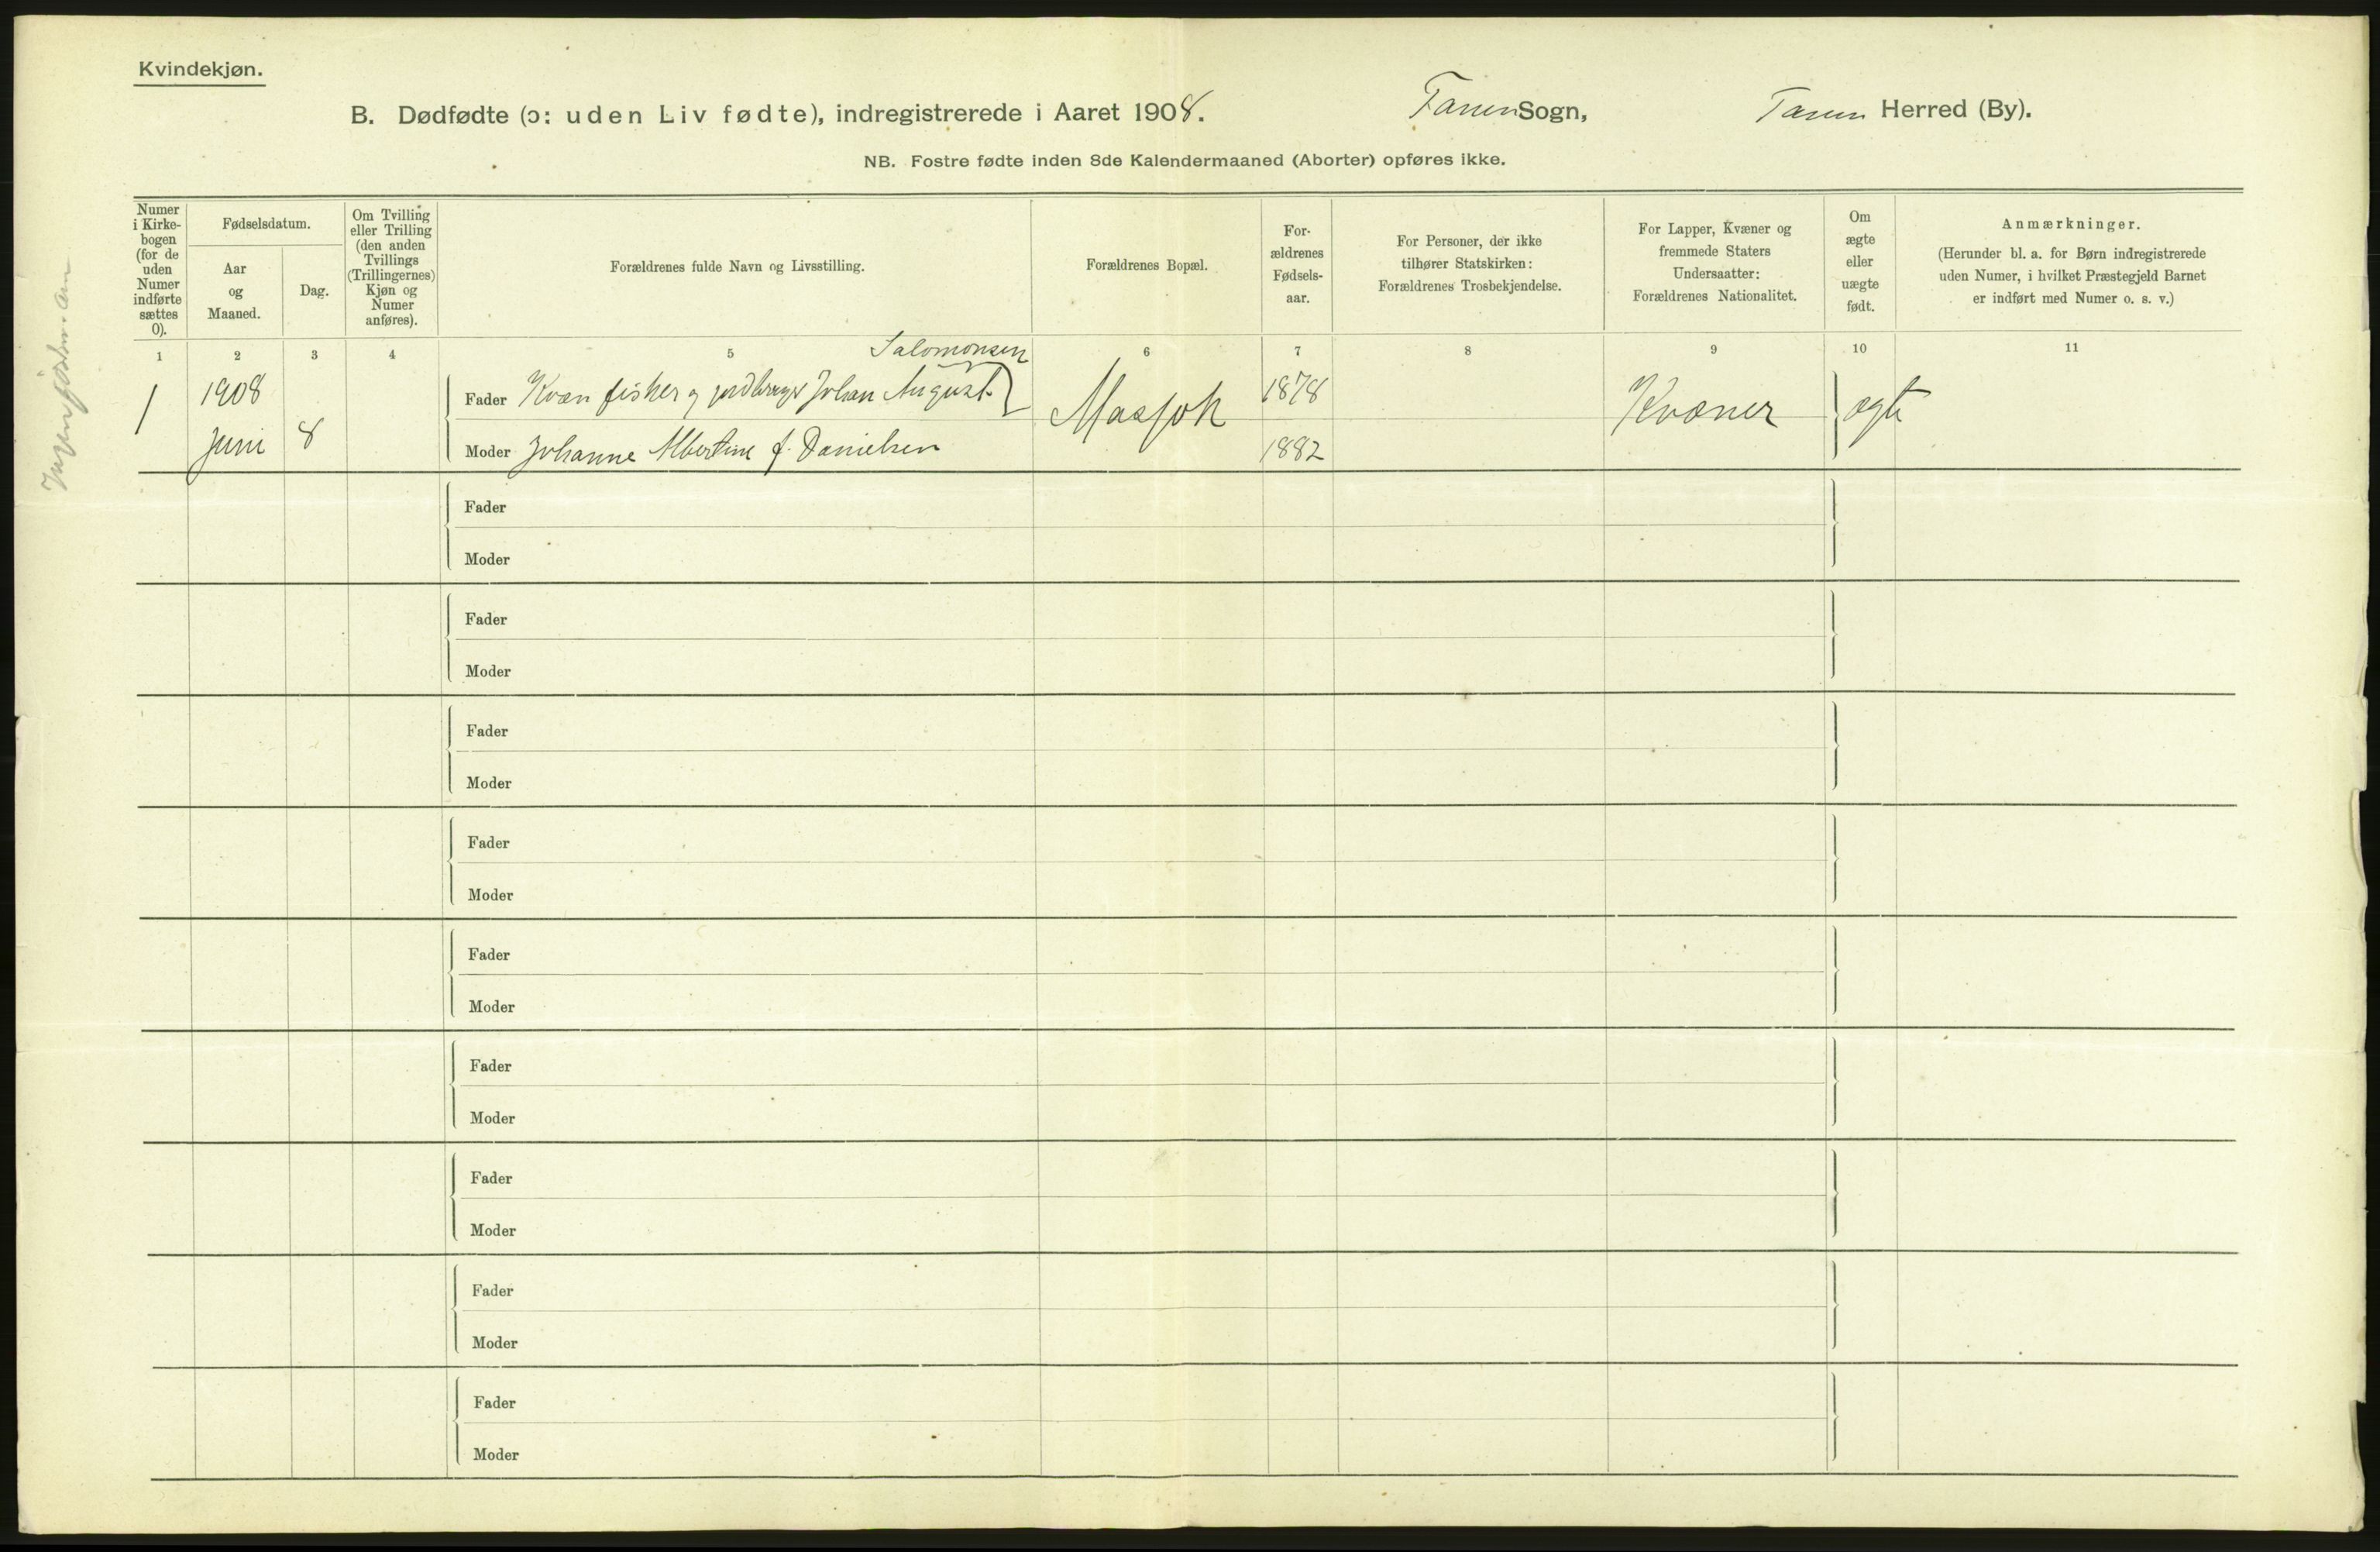 Kvindekjøn.
B. Dødfødte (ɔ: uden Liv fødte), indregistrerede i Aaret 1908. Tanen Sogn, Tanen Herred (By).
NB. Fostre fødte inden 8de Kalendermaaned (Aborter) opføres ikke.
Numer
i Kirke-
bogen
(for de
uden
Numer
indførte
sættes
0).
Fødselsdatum.
Aar
og
Maaned.
Dag.
Om Tvilling
eller Trilling
(den anden
Tvillings
(Trillingernes)
Kjøn og
Numer
anføres).
Forældrenes fulde Navn og Livsstilling.
Forældrenes Bopæl.
For-
ældrenes
Fødsels-
aar.
For Personer, der ikke
tilhører Statskirken:
Forældrenes Trosbekjendelse.
For Lapper, Kvæner og
fremmede Staters
Undersaatter:
Forældrenes Nationalitet.
Om
ægte
eller
uægte
født.
Anmærkninger.
(Herunder bl. a. for Børn indregistrerede
uden Numer, i hvilket Præstegjeld Barnet
er indført med Numer o. s. v.)
1 2 3 4 5 6 7 8 9 10 11
Salomonsen
1 1908 Juni 8
Fader Kvæn fisker og jordbruger Johan August
Moder Johanne Albertine f. Danielsen
Masjok
1878
1882
Kvæner
ægte
Fader
Moder
Fader
Moder
Fader
Moder
Fader
Moder
Fader
Moder
Fader
Moder
Fader
Moder
Fader
Moder
Fader
Moder